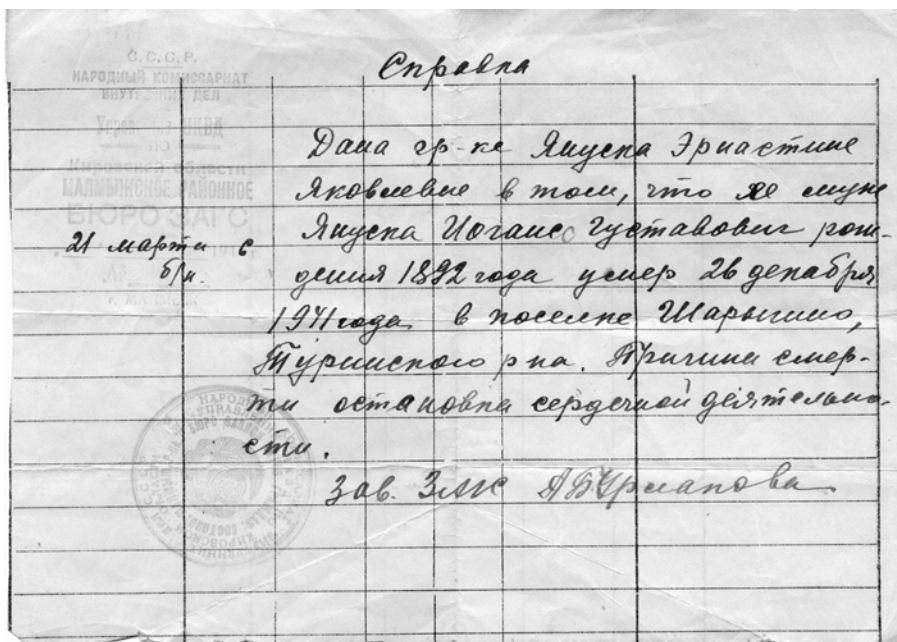 С.С.С.Р.
НАРОДНЫЙ КОМИССАРИАТ
ВНУТРЕННИХ ДЕЛ
Управление НКВД
ПО
Кировской области
МАЛМЫЖСКОЕ РАЙОННОЕ
БЮРО ЗАГС
21 марта с
б/н.
№
г.
Справка
Дана гр-ке Януска Эрнастине
Яковлевне в том, что ее муж
Януска Иоганс Густавович рож-
дения 1892 года умер 26 декабря
1941 года в поселке Шарыгино,
Туринского р на. Причина смер-
ти остановка сердечной деятельно-
сти.
Зав. ЗАГС